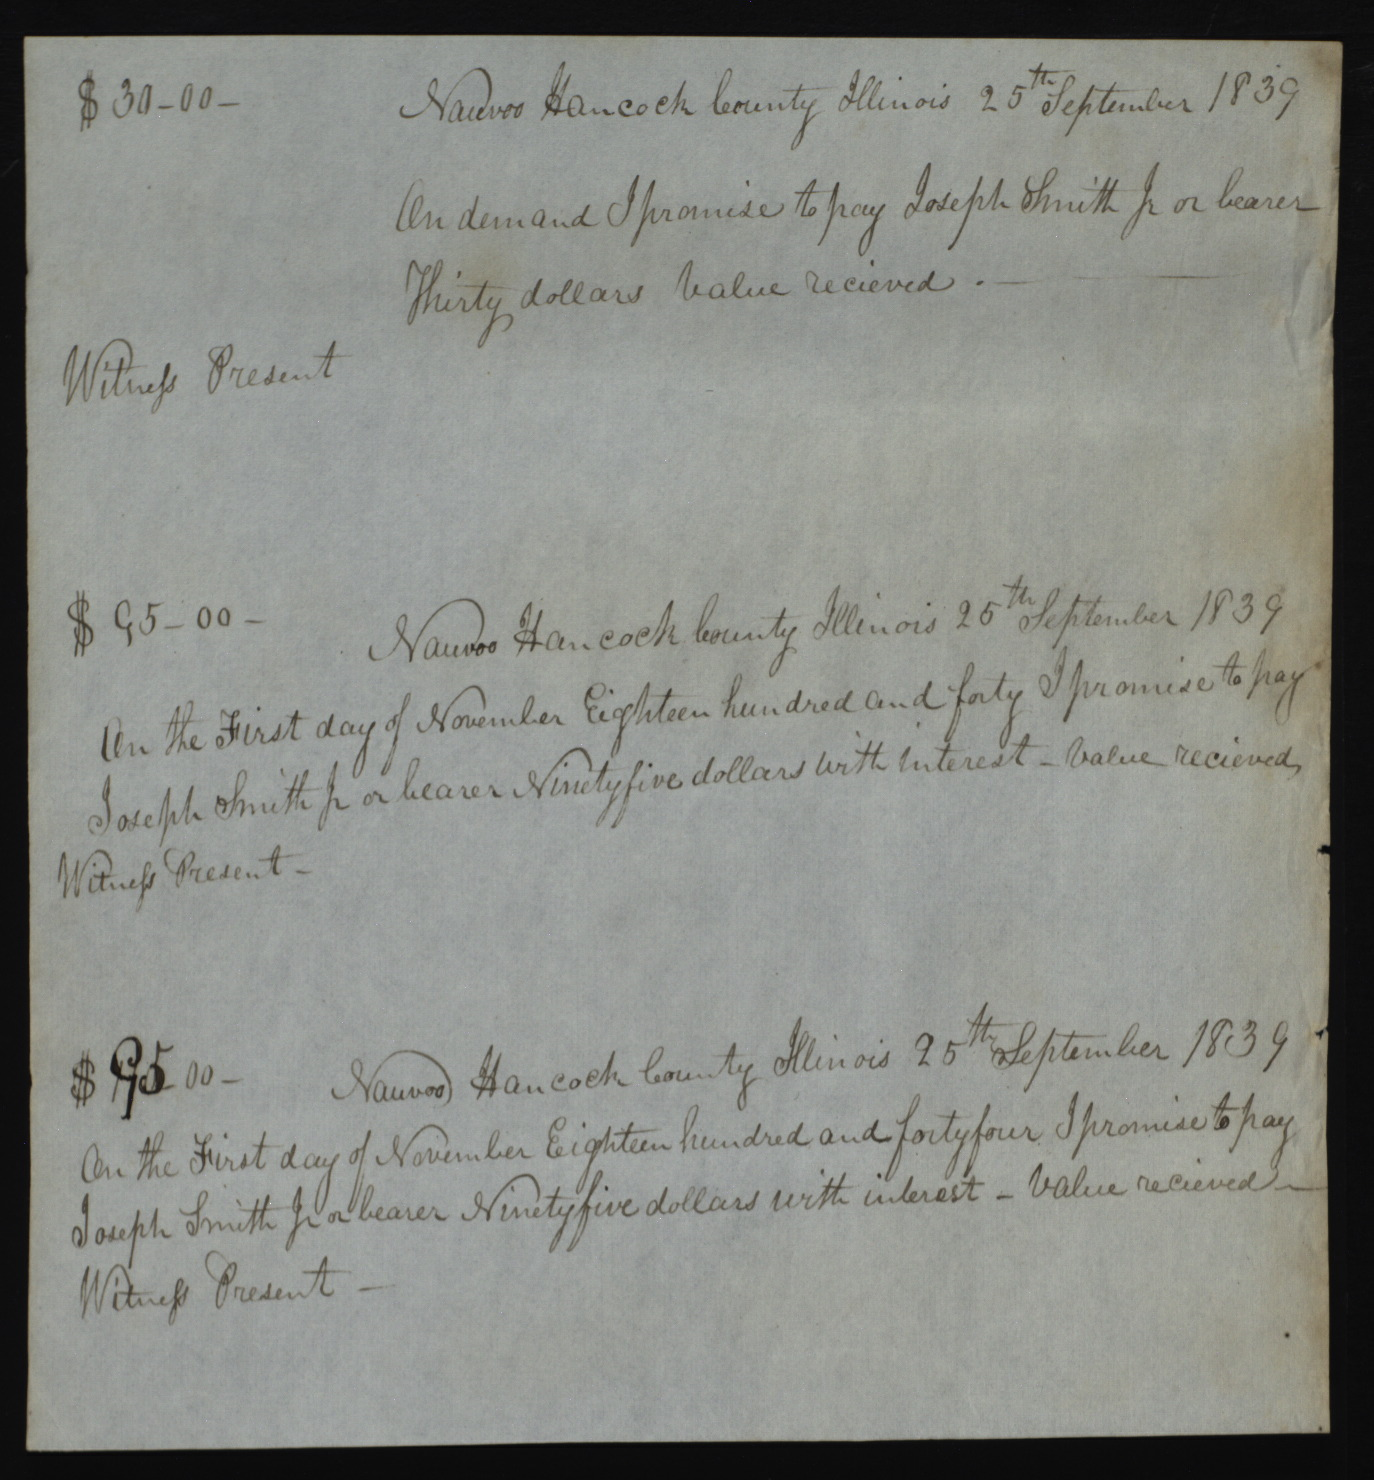 $30-00- Nauvoo Hancock County Illinois 25th September 1839
On demand I promise to pay Joseph Smith Jr or bearer
Thirty dollars Value recieved. —
Witness Present
$95-00- Nauvoo Hancock County Illinois 25th September 1839
On the First day of November Eighteen hundred and forty I promise to pay
Joseph Smith Jr or bearer Ninetyfive dollars with interest - Value recieved,
Witness Present -
$95-00- Nauvoo Hancock County Illinois 25th September 1839
On the First day of November Eighteen hundred and fortyfour I promise to pay
Joseph Smith Jr or bearer Ninetyfive dollars with interest - Value recieved -
Witness Present -